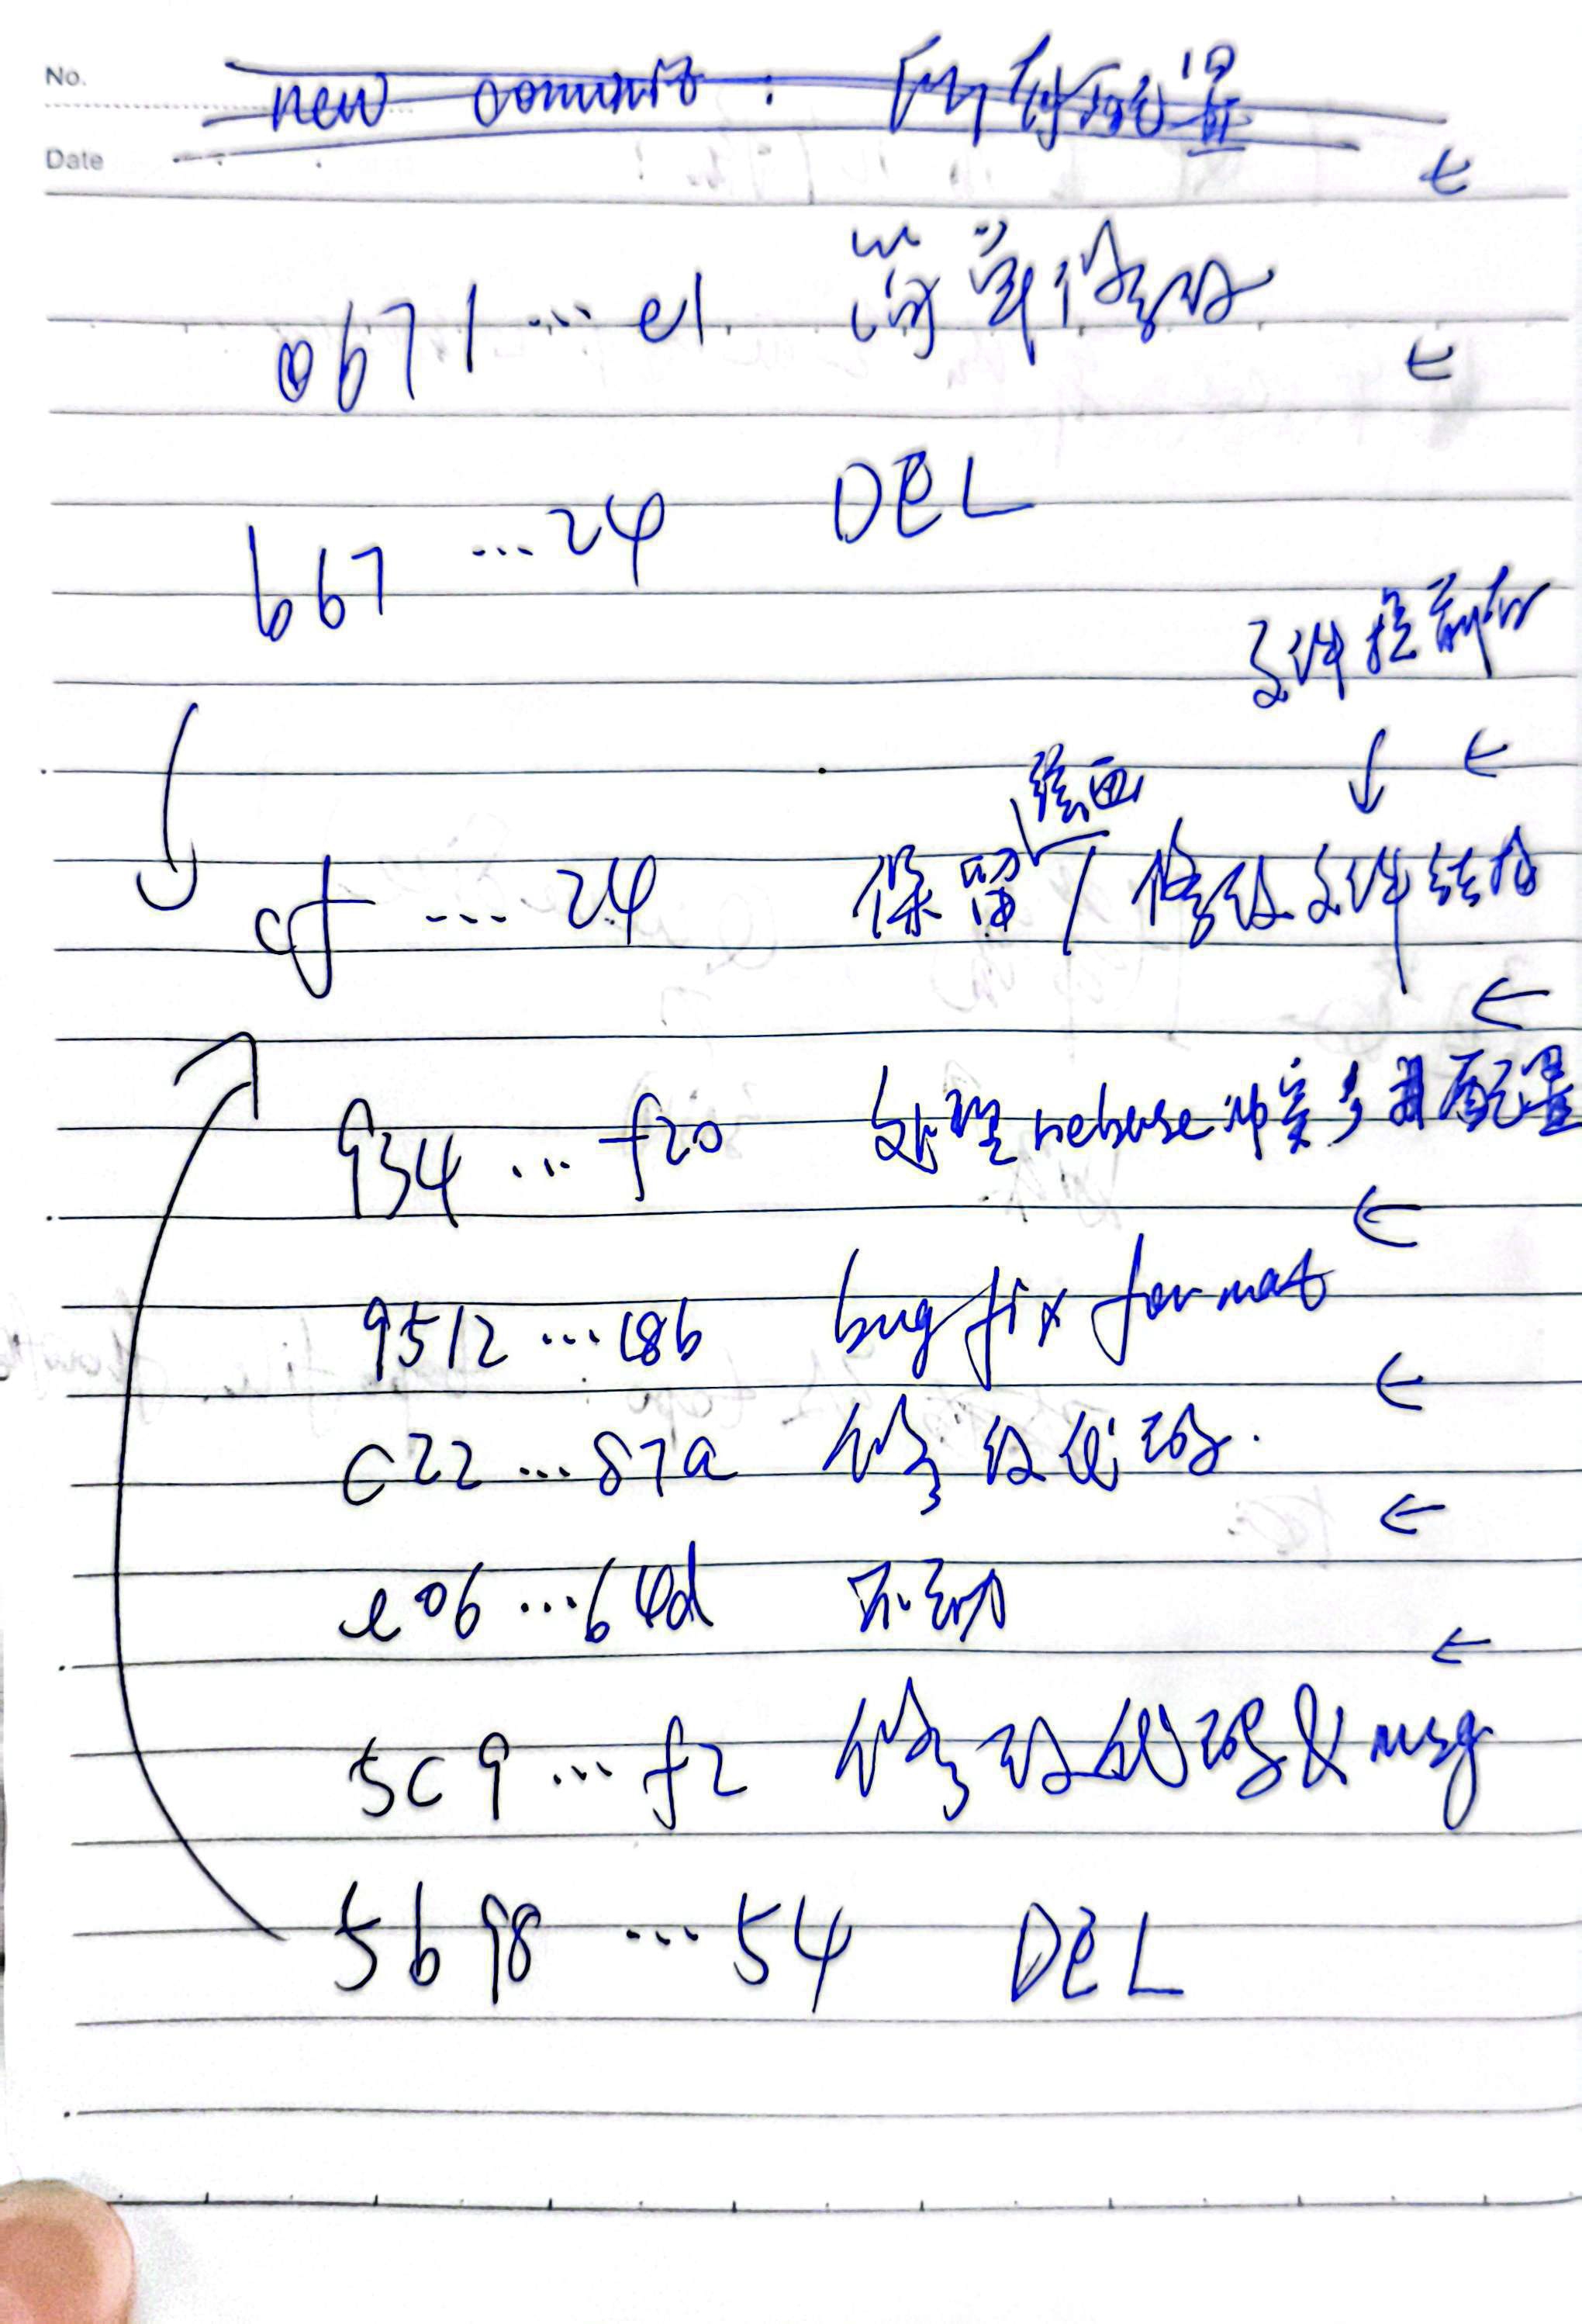 No.
new commit : 所有配置
Date
0671 ... e1 简单修改
b67 ... 24 DEL
文件控制
绘画
cf ... 24 保留 / 修改文件结构
934 ... f20 处理rebase冲突 配置
9512 ... c8b bug fix format
c22 ... 87a 修改代码.
e06 ... 64d 不动
5c9 ... f2 修改代码 & msg
5b98 ... 54 DEL